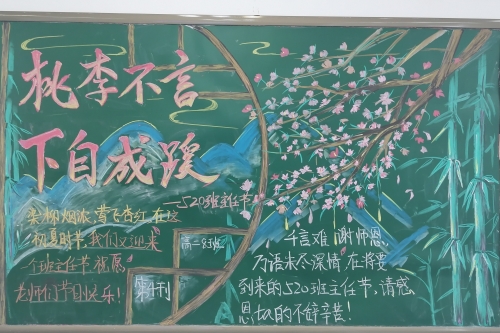 桃李不言
下自成蹊
—520班主任节
柔柳烟浓,莺飞杏红,在这
初夏时节,我们又迎来
个班主任节,祝愿
老师们节日快乐!
高一83班
第4刊
千言难谢师恩,
万语未尽深情,在将要
到来的520班主任节,请感
恩,奴的不辞辛苦!